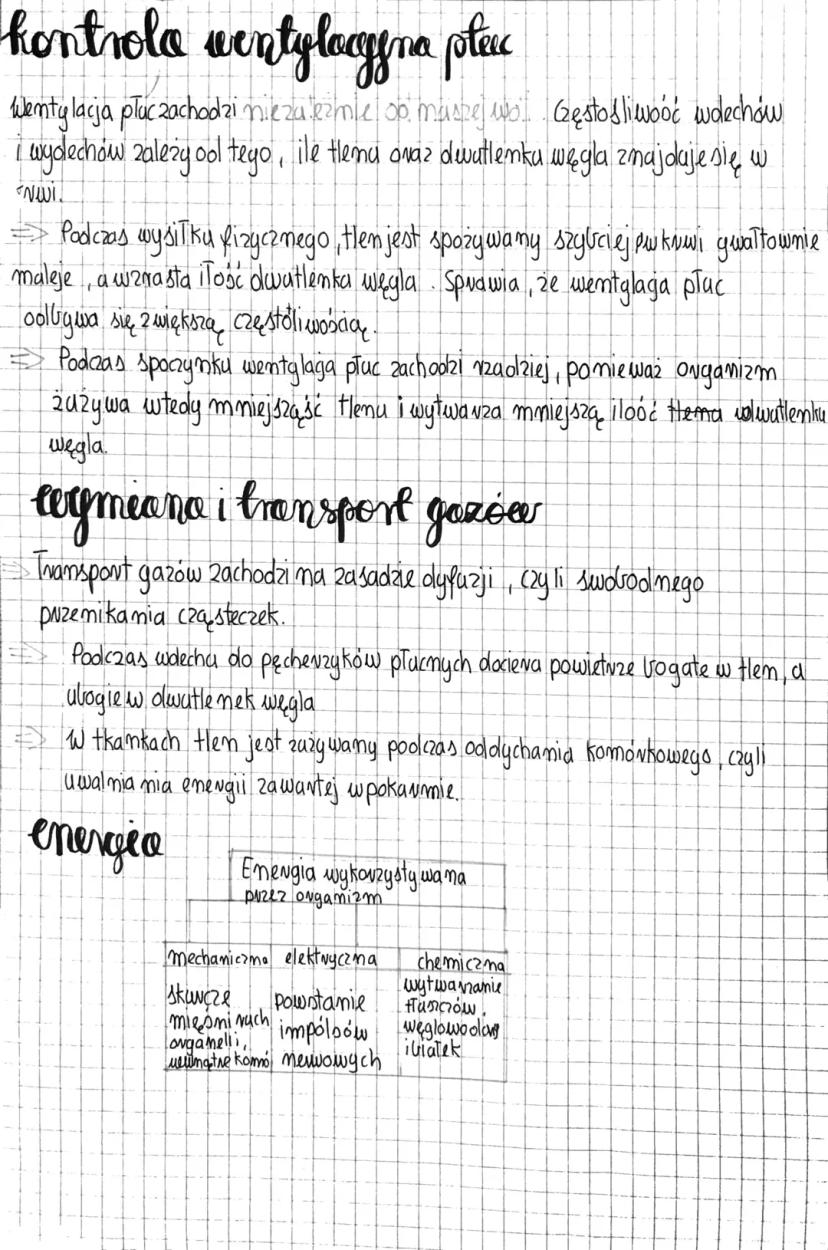 kontrola wentylacyjna płuc
Wentylacja płuc zachodzi niezależnie od naszej woli. Częstośliwość wdechów
i wydechów zależy od tego, ile tlenu oraz dwutlenku węgla znajduje się w
krwi.
⇒ Podczas wysiłku fizycznego, tlen jest spożywany szybciej gwałtownie
maleje, a wzrasta ilość dwutlenka węgla. Sprawia, że wentylacja płuc
odbywa się z większą częstóliwością.
⇒ Podczas spoczynku wentylacja płuc zachodzi rzadziej, ponieważ organizm
zużywa wtedy mniejszą tlenu i wytwarza mniejszą ilość dwutlenku
węgla.
wymiana i transport gazów
⇒ Transport gazów zachodzi na zasadzie dyfuzji, czyli swobodnego
przenikania cząsteczek.
⇒ Podczas wdechu do pęcherzyków płucnych dociera powietrze bogate w tlen, a
ubogie w dwutlenek węgla
⇒ W tkankach tlen jest zużywany podczas oddychania komórkowego, czyli
uwalniania energii zawartej w pokarmie.
energia
Energia wykorzystywana
przez organizm
mechaniczna elektryczna chemiczna
skurcze powstanie wytwarzanie
mięśni ruch impólsów tłuszczów,
organelli, nerwowych węglowodany
wewnątrz komó i białek